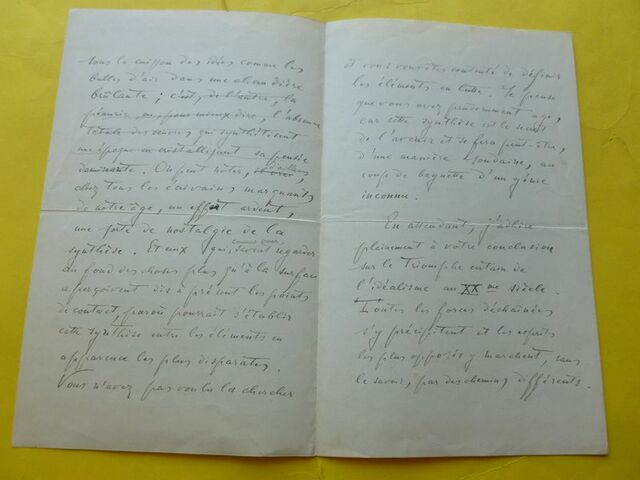 sous la cuisson des idées comme les
bulles d'air dans une chaudière
brûlante; c'est, de l'autre, la
pénurie, ou, pour mieux dire, l'absence
totale des œuvres qui synthétisent
une époque en cristallisant sa pensée
dominante. On peut noter, d'ailleurs
chez tous les écrivains marquants
de notre âge, un effort ardent,
une sorte de nostalgie de la
synthèse. Et ceux qui, comme vous, savent regarder
au fond des choses plus qu'à la surface
aperçoivent dès à présent les points
de contact, par où pourrait s'établir
cette synthèse entre les éléments en
apparence les plus disparates.
Vous n'avez pas voulu la chercher
et vous vous êtes contenté de définir
les éléments en lutte. Je pense
que vous avez prudemment agi,
car cette synthèse est le secret
de l'avenir et se fera peut-être,
d'une manière soudaine, au
coup de baguette d'un génie
inconnu.
En attendant, j'adhère
pleinement à votre conclusion
sur le Triomphe certain de
l'idéalisme au XXme siècle.
Toutes les forces déchaînées
s'y précipitent et les esprits
les plus opposés y marchent, sans
le savoir, par des chemins différents.